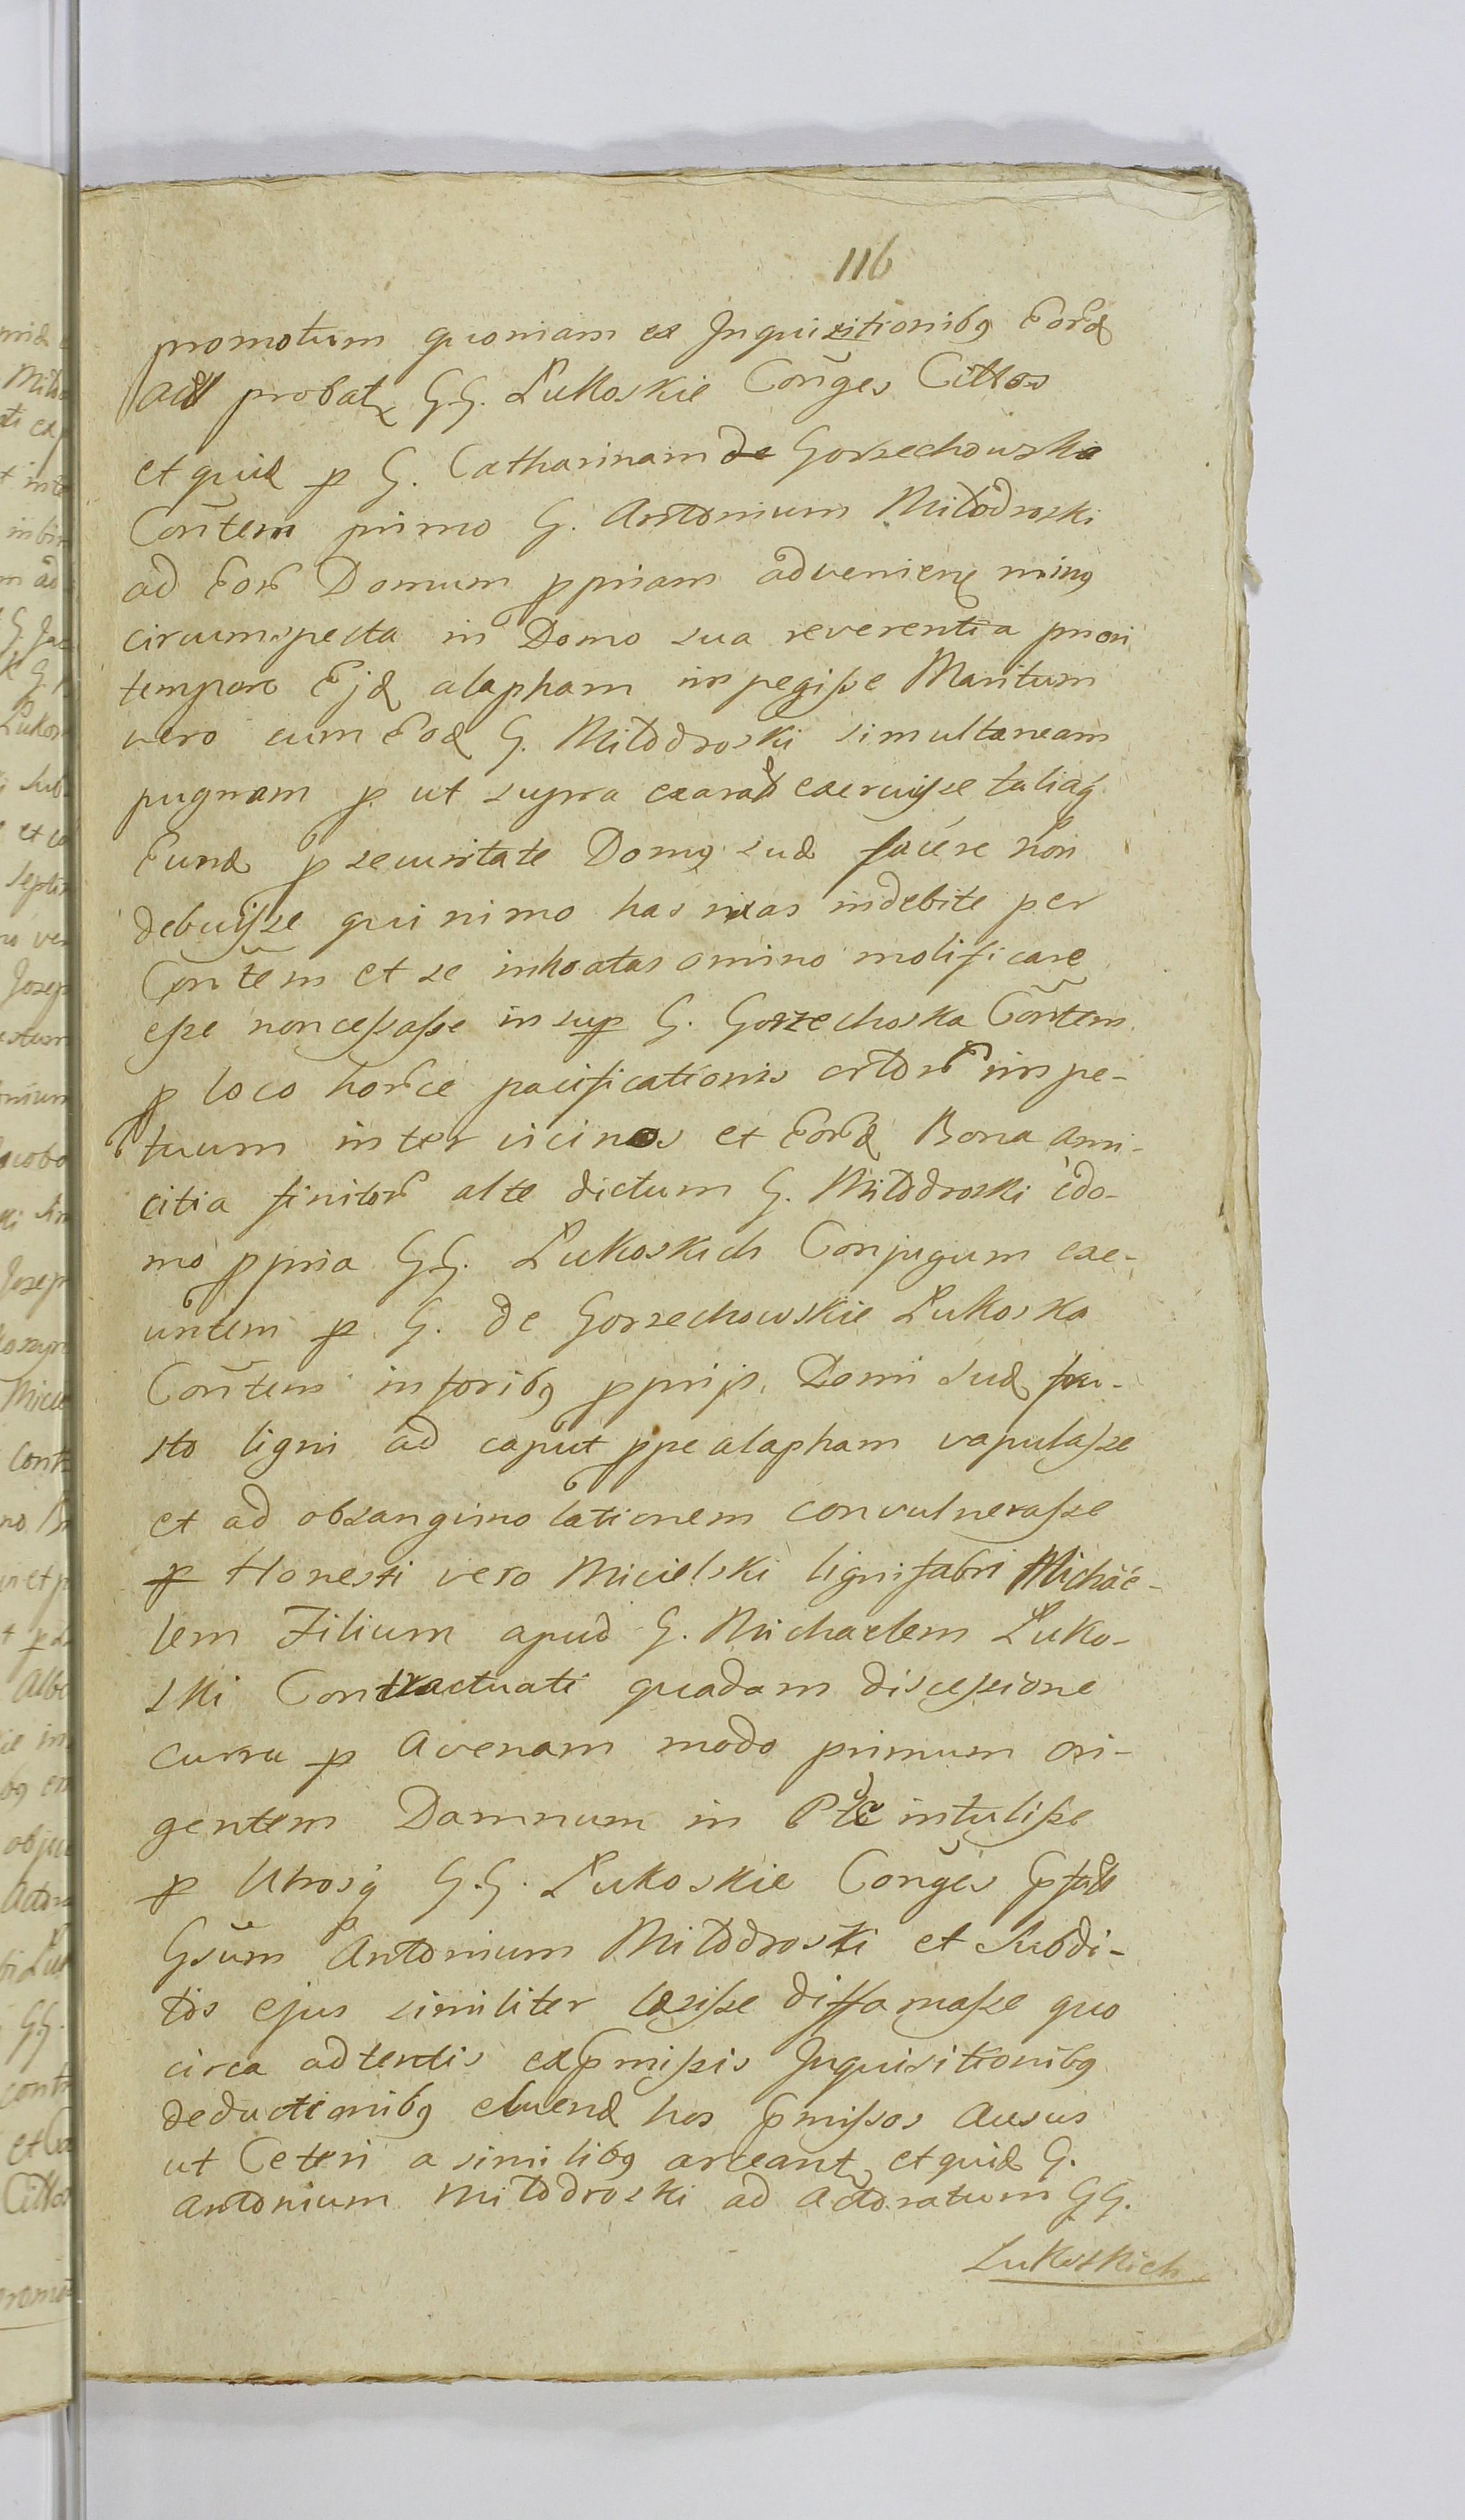 116
promotum quoniam ex Inquizitionibꝫ Eorđ
probatꝫ G.G. Łukoskie Coñges Cittos
et quid ꝑ G. Catharinam de Gorzechowska
Coñtem primo G. Antonium Miłodroski
ad Eor̃ Domum ꝓpriam advenienꝫ minꝫ
circumspecta in Domo sua reverentia priori
tempore Ejđ alapham impegisse Maritum
vero cum Eođ G. Miłodroski simultaneam
pugnam ꝑ ut supra exarat exercuisse taliaq
Eund ꝓ securitate Domꝫ suæ facere non
debuisse quinimo has rixas indebite per
Coñtem et se inhoatas omino molificare
esse non cessasse insuꝑ G. Gorzechoska Coñtem
ꝓ loco hor̃ce pacificationis impe-
tuum inter vicinos et Eorđ Bona ami-
citia finitor̃ alte dictum G. Miłodroski e do-
mo ꝓpria G.G. Łukoskich Conjugum exe-
untem ꝑ G. de Gorzechowskie Łukoska
Coñtem in foribꝫ ꝓprijs Domi suæ fru-
sto ligni ad caput ꝓpe alapham vapulasse
et ad obsangino lationem convulnerasse
ꝑ Honesti vero Micielski lignifabri Michäe-
lem Filium apud G. Michaelem Łuko-
ski Contractuati quadam discessione
curru ꝑ Avenam modo primum ori-
gentem Damnum in intulisse
ꝑ Utrosq G.G. Łukoskie Coñges
Gsũm Antonium Miłodroski et Subdi-
tos ejus similiter læsisse diffamasse quo
circa adtentis ex p̃missis Inquisitionibꝫ
deductionibꝫ eluend hos p̃missos Ausus
ut Ceteri a similibꝫ arceantꝫ et quid G.
Antonium Miłodroski ad Actoratum G.G.
Łukoskich